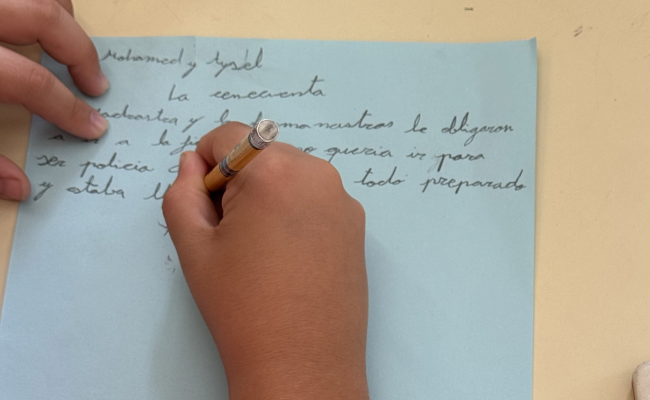 Mohamed y Aysel
La cenecienta
madrastra y las hermanastras le obligaron
a la queria ir para
ser policia todo preparado
y staba